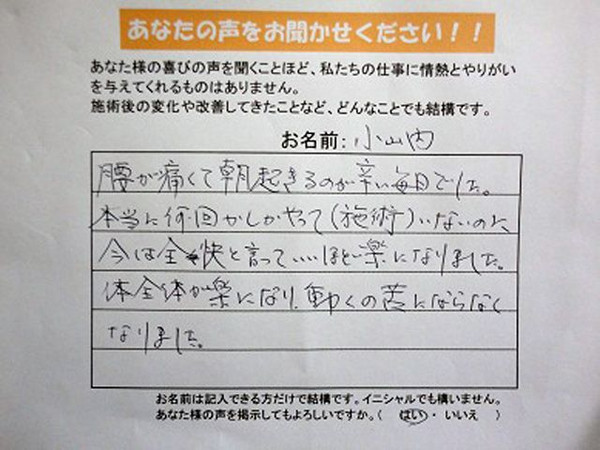 あなたの声をお聞かせください!!
あなた様の喜びの声を聞くことほど、私たちの仕事に情熱とやりがい
を与えてくれるものはありません。
施術後の変化や改善してきたことなど、どんなことでも結構です。
お名前:小山内
腰が痛くて朝起きるのが辛い毎日でした。
本当に何回かしかやって(施術)いないのに、
今は全快と言って....いいほど楽になりました。
体全体が楽になり、動くの苦にならなく
なりました。
お名前は記入できる方だけで結構です。イニシャルでも構いません。
あなた様の声を掲示してもよろしいですか。( はい ・ いいえ )